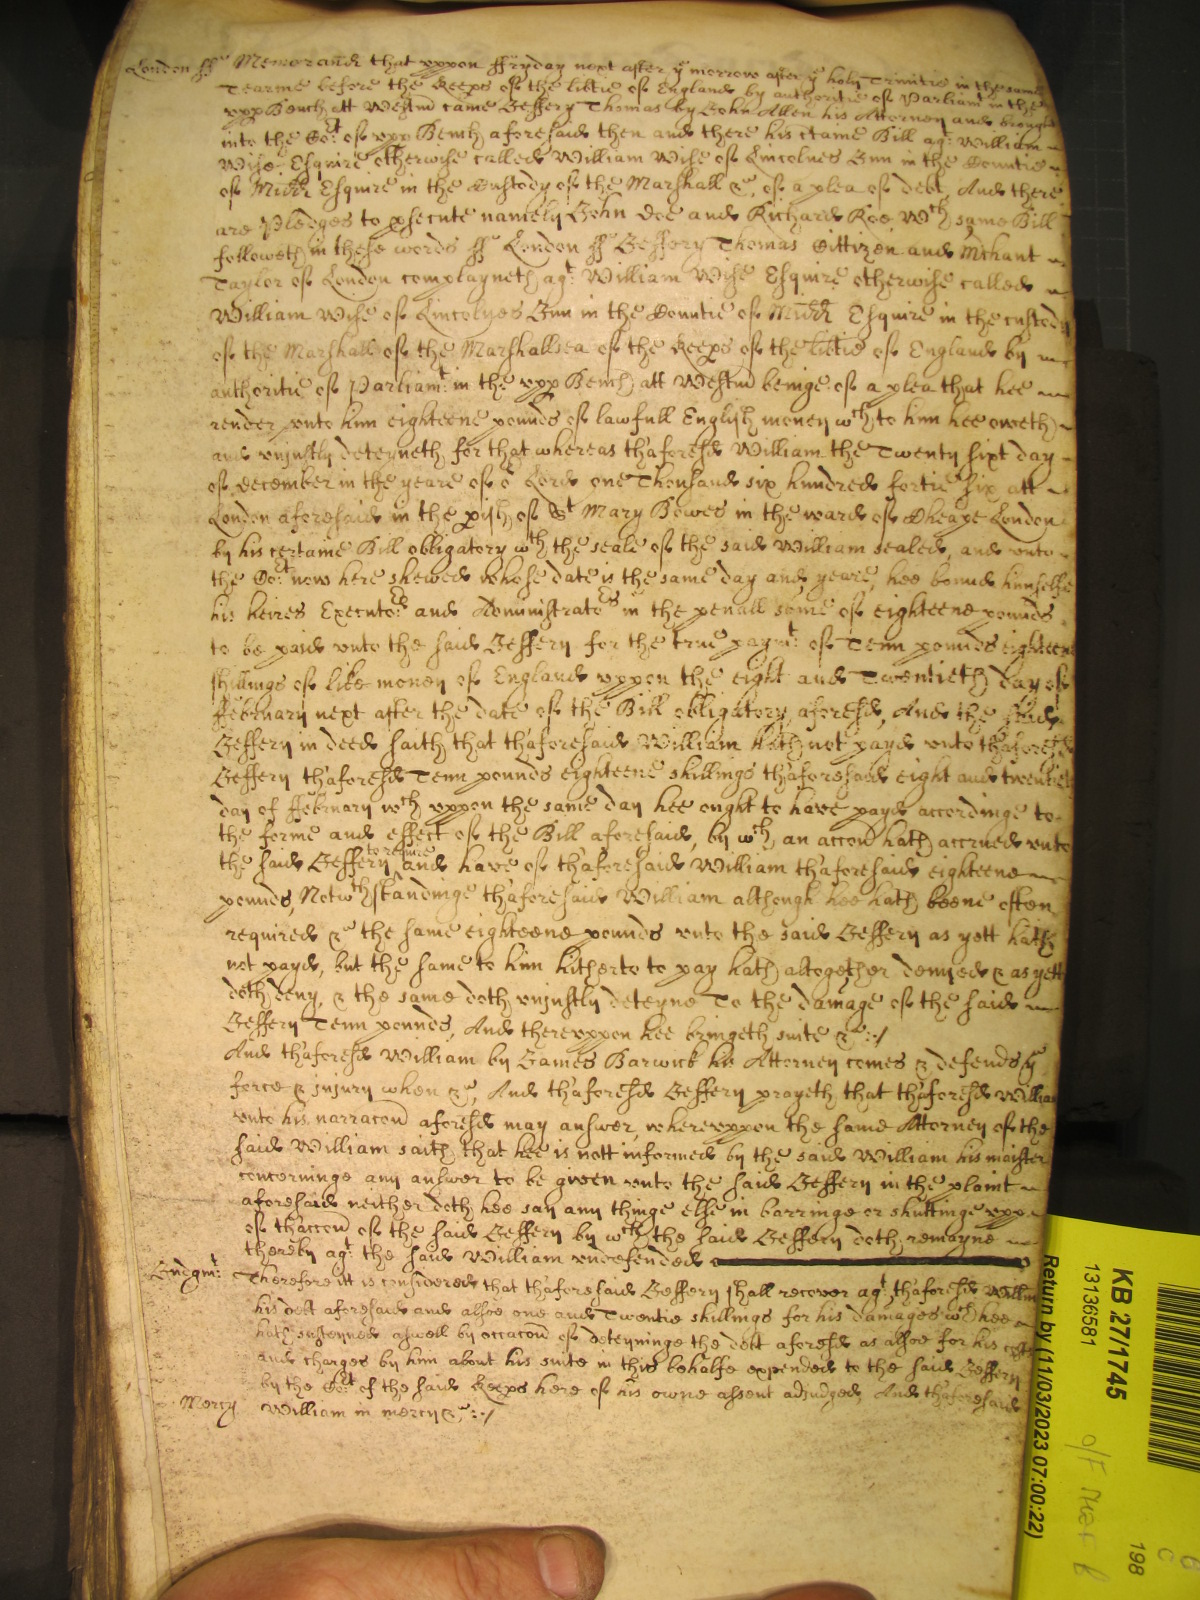 London ss Memorand that uppon ffryday next after ye morrow after ye holy Trinitie in the same
Tearme before the Keeps of the libtie of England by authoritie of Parliam in the
upp Bench att Westm came Jeffery Thomas by John Allen his Attorney and brought
into the Cort of upp Bench aforesaid then and there his ctaine Bill agt William
Wise Esquire otherwise called William Wise of Lincolnes Inn in the Countie
of Midd Esquire in the Custody of the Marshall &c, of a plea of debt, And there
are Pledges to psecute namely John Doe and Richard Roe, Wch same Bill
followeth in these words ss London ss Jeffery Thomas Cittizen and Mchant
Taylor of London complayneth agt William Wise Esquire otherwise called
William Wise of Lincolnes Inn in the Countie of Midd Esquire in the custody
of the Marshall of the Marshallsea of the Keeps of the libtie of England by
authoritie of Parliamt in the upp Bench att Westm beinge of a plea that hee
render unto him eighteene pounds of lawfull English money wch to him hee oweth
and unjustly deteyneth for that whereas thaforesd William the Twenty sixt day
of december in the yeare of or Lord one Thousand six hundred fortie six att
London aforesaid in the pish of St Mary Bowes in the ward of Cheape London
by his certaine Bill obligatory wth the seale of the said William sealed, and unto
the Cort now here shewed whose date is the same day and yeare, hee bound himselfe
his heires Executors and Administrators in the penall some of eighteene pounds
to be paid unto the said Jeffery for the true paymt of Tenn pounds eighteene
shillings of like money of England uppon the eight and Twentieth day of
ffebruary next after the date of the Bill obligatory aforesd, And the said
Jeffery in deed saith that thaforesaid William hath not payd unto thaforesd
Jeffery thaforesd Tenn pounds eighteene shillings thaforesaid eight and twentieth
day of ffebruary wch uppon the same day hee ought to have payd accordinge to
the forme and effect of the Bill aforesaid, by wch an accon hath accrued unto
the said Jeffery to require and have of thaforesaid William thaforesaid eighteene
pounds, Notwthstandinge thaforesaid William although hee hath beene often
required &c the same eighteene pounds unto the said Jeffery as yett hath
not payd, but the same to him hitherto to pay hath altogether denyed & as yett
doth deny, & the same doth unjustly deteyne To the damage of the said
Jeffery Tenn pounds, And thereuppon hee bringeth suite &c:/
And thaforesd William by James Barwick his Attorney comes & defends ye
force & injury when &c, And thaforesd Jeffery prayeth that thaforesd William
unto his narracon aforesd may answer, whereuppon the same Attorney of the
said William saith that hee is nott informed by the said William his maister
concerninge any answer to be given unto the said Jeffery in the plaint
aforesaid neither doth hee say any thinge else in barringe or shuttinge upp
of thaccon of the said Jeffery by wch the said Jeffery doth remayne
thereby agt the said William undefended
Judgmt Therefore itt is considered that thaforesaid Jeffery shall recover agt thaforesd Willm
his debt aforesaid and alsoe one and Twentie shillings for his damages wch hee
hath susteyned aswell by occacon of deteyninge the debt aforesd as alsoe for his costs
and charges by him about his suite in this behalfe expended to the said Jeffery
by the Cort of the said Keeps here of his owne assent adjudged, And thaforesaid
Mercy William in mercy &c:/
KB 271/745
13136581
Return by (11/03/2023 07:00:22)
198